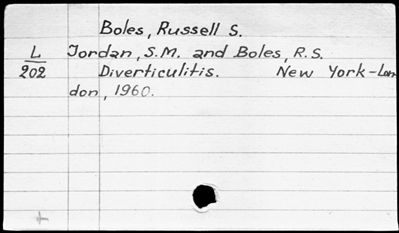 Boles, Russell S.
L
202
Jordan, S.M. and Boles, R.S.
Diverticulitis. New York-Lon
don, 1960.